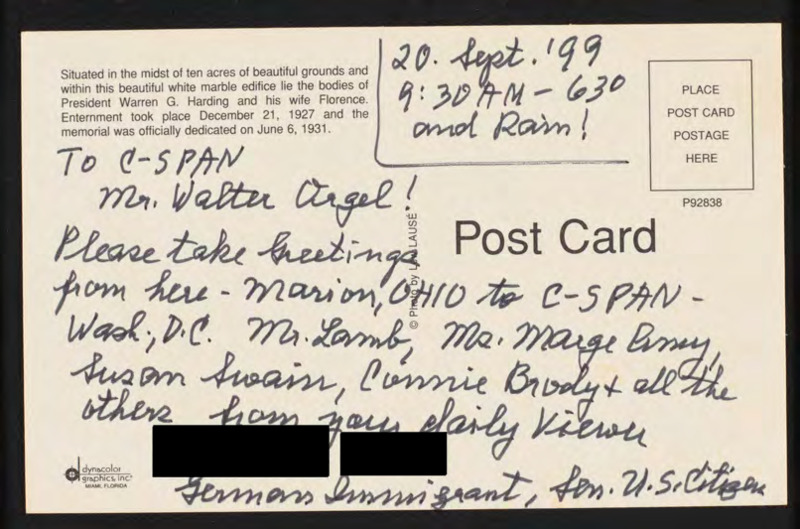 Situated in the midst of ten acres of beautiful grounds and
within this beautiful white marble edifice lie the bodies of
President Warren G. Harding and his wife Florence.
Enternment took place December 21, 1927 and the
memorial was officially dedicated on June 6, 1931.
20. Sept. '99
9:30 AM - 630
and Rain!
PLACE
POST CARD
POSTAGE
HERE
P92838
Post Card
© Photo by LAUSÉ
To C-SPAN
Mr. Walter !
Please take Greetings
from here - Marion, OHIO to C-SPAN -
Wash., D.C. Mr. Lamb, Ms. Marge
Susan Swain, Connie Brody + all the
others from your daily Viewer
German Immigrant, Sen. U.S. Citizen
dynacolor
graphics, inc.
MIAMI, FLORIDA